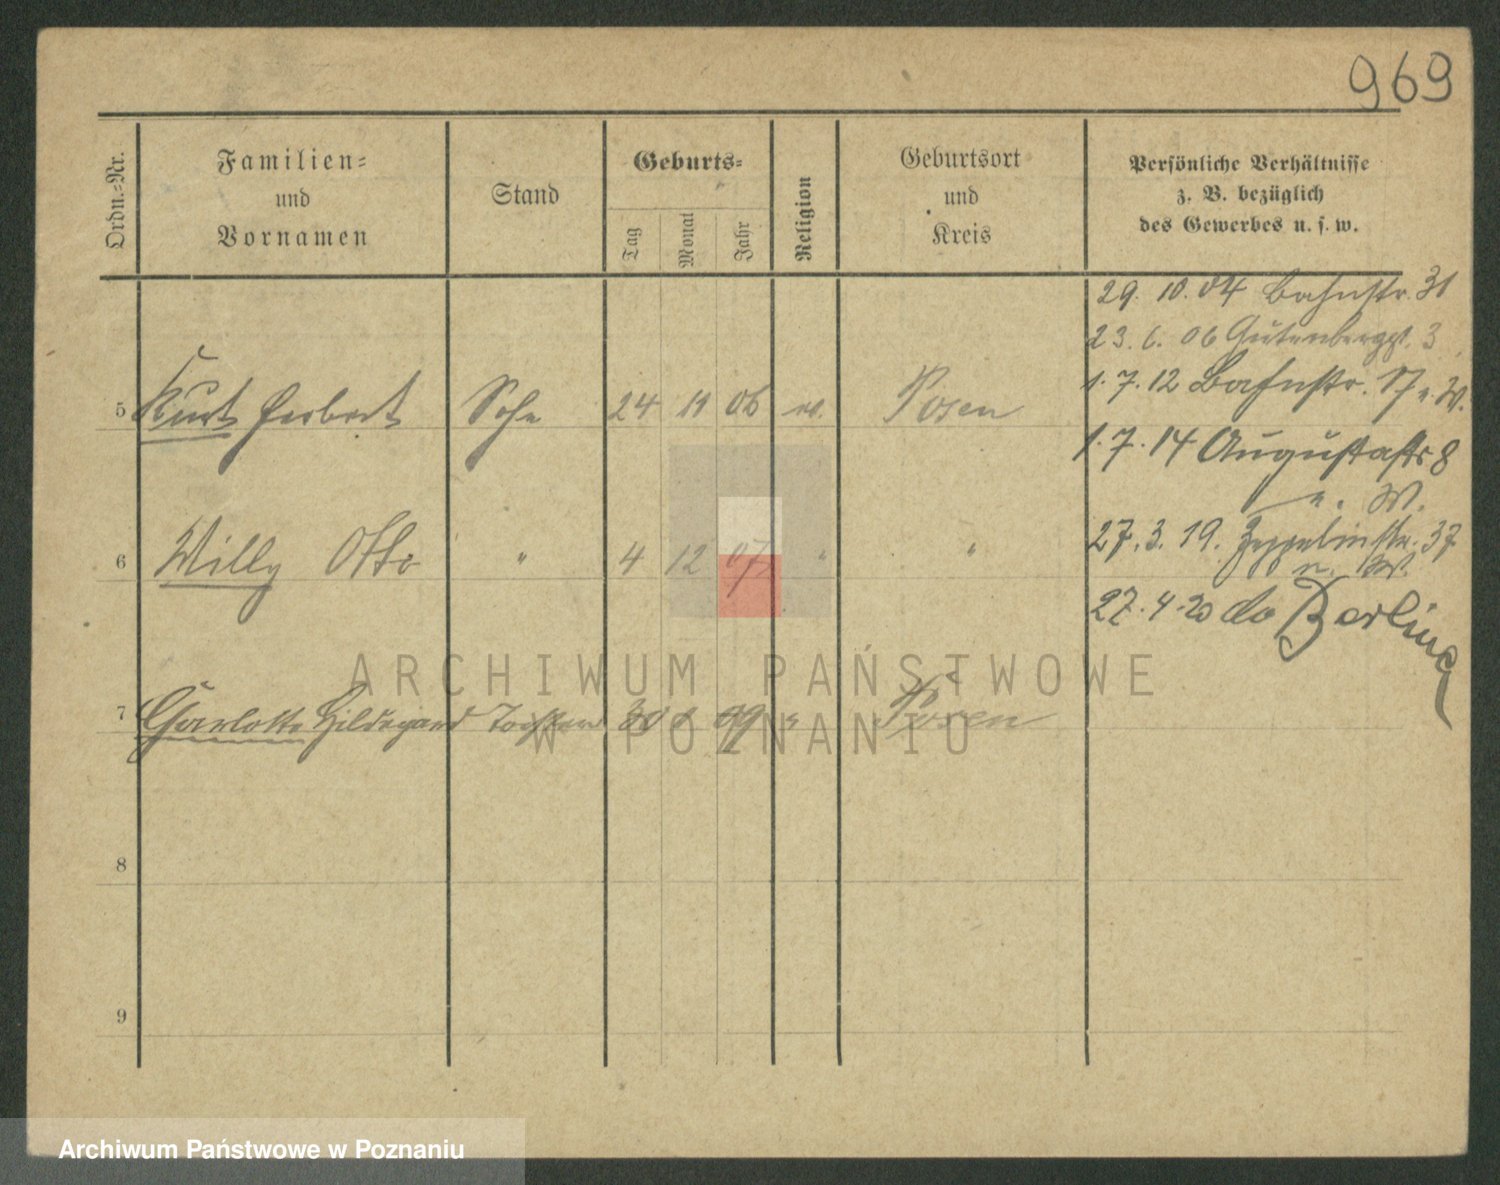 969
Ordn.-Nr.
Familien-
und
Vornamen
Stand
Geburts-
Tag
Monat
Jahr
Religion
Geburtsort
und
Kreis
Persönliche Verhältnisse
z. B. bezüglich
des Gewerbes u. s. w.
29. 10. 04 Bahnstr. 31
23. 6. 06 Gutenbergst. 3
1. 7. 12 Bahnstr. 17 u. W.
5 Kurt Herbert Sohn 24 11 06 ev. Posen
1. 7. 14 Augustastr 8
u. W.
6 Willy Otto " 4 12 07 " "
27. 3. 19. Zeppelinstr. 37
u. W.
27. 4. 20 do Berlin
7 Charlotte Hildegard Tochter 30 09 " Posen
8
9
ARCHIWUM PAŃSTWOWE
W POZNANIU
Archiwum Państwowe w Poznaniu